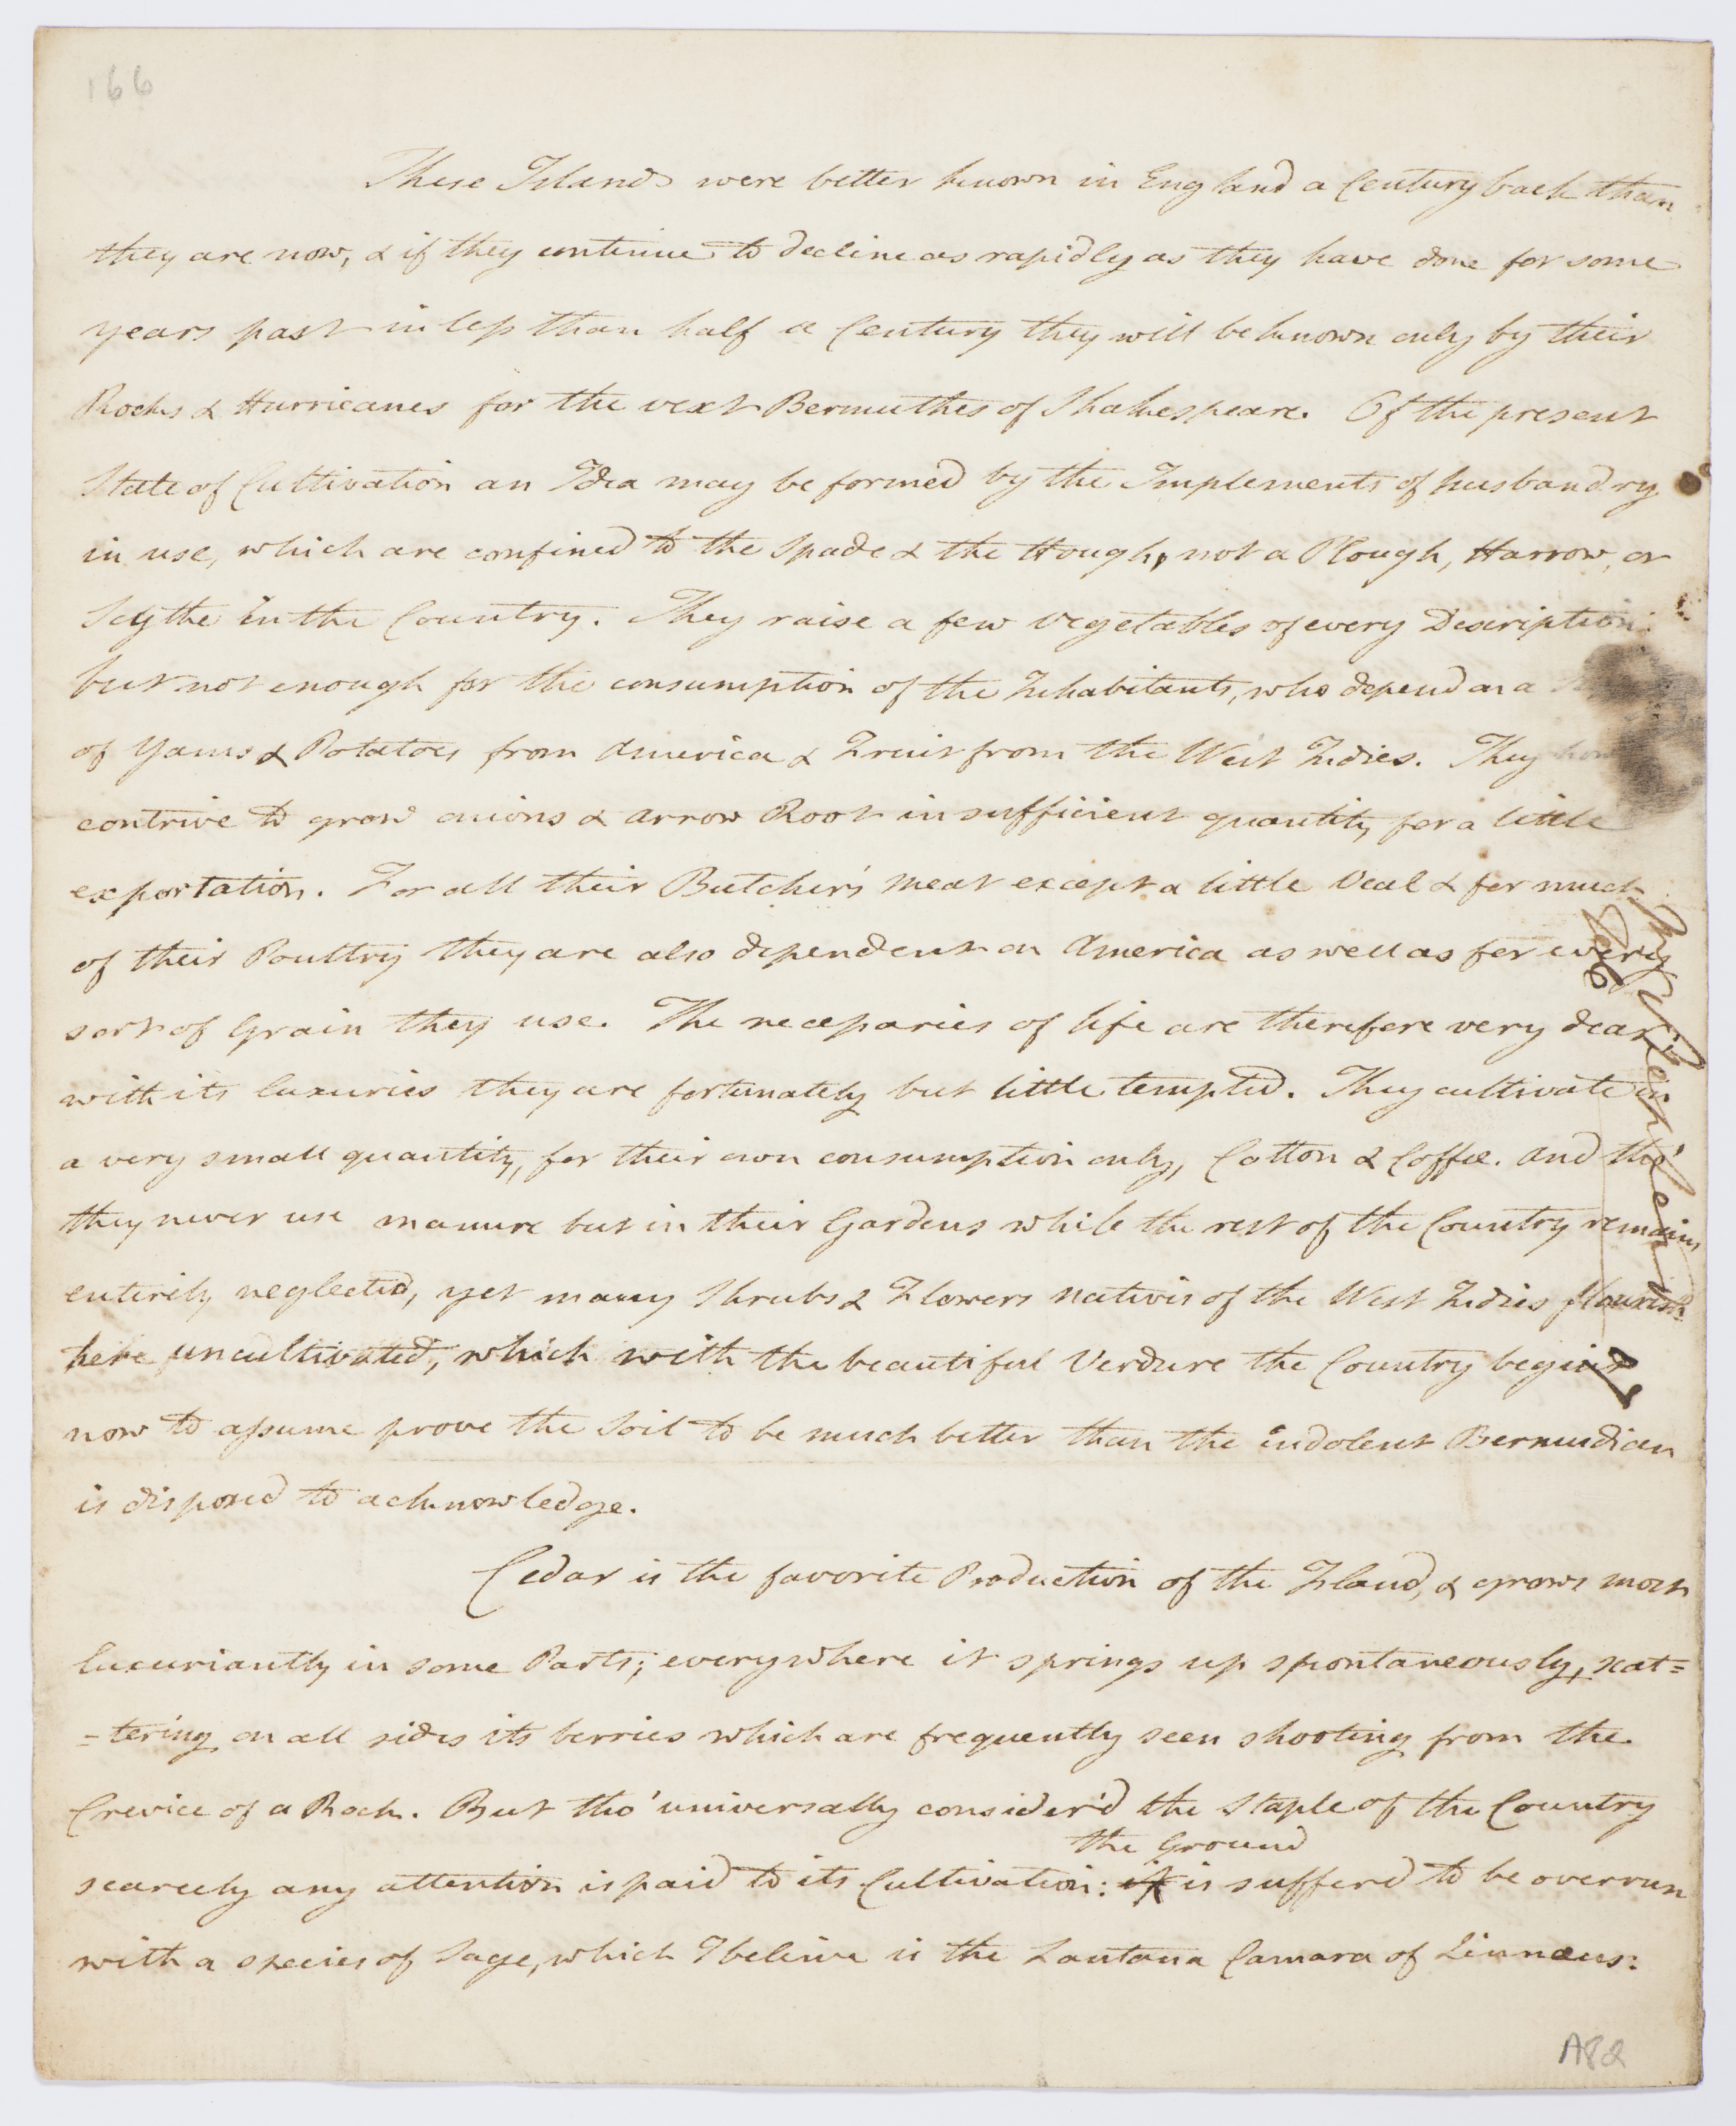 166
These Islands were better known in England a Century back than
they are now, & if they continue to decline as rapidly as they have done for some
years past in less than half a Century they will be known only by their
Rocks & Hurricanes for the vext Bermuthes of Shakespeare. Of the present
State of Cultivation an Idea may be formed by the Implements of husbandry
in use, which are confined to the Spade & the Hough, not a Plough, Harrow, or
Scythe in the Country. They raise a few vegetables of every Description
but not enough for the consumption of the Inhabitants, who depend on a
of Yams & Potatoes from America & Fruit from the West Indies. They
contrive to grow onions & arrow Root in sufficient quantity for a little
exportation. For all their Butcher's meat except a little Veal & for much
of their Poultry they are also dependent on America as well as for every
sort of Grain they use. The necessaries of life are therefore very dear,
with its luxuries they are fortunately but little tempted. They cultivate in
a very small quantity, for their own consumption only, Cotton & Coffee. And tho'
they never use manure but in their Gardens while the rest of the Country remains
entirely neglected, yet many Shrubs & Flowers natives of the West Indies flourish
here uncultivated, which with the beautiful Verdure the Country begins
now to assume prove the Soil to be much better than the indolent Bermudian
is disposed to acknowledge.
Cedar is the favorite Production of the Island, & grows most
luxuriantly in some Parts; everywhere it springs up spontaneously, scat=
=tering on all sides its berries which are frequently seen shooting from the
Crevice of a Rock. But tho' universally consider'd the Staple of the Country
the Ground
scarcely any attention is paid to its Cultivation: it is sufferd to be overrun
with a species of Sage, which I believe is the Lantana Camara of Linnæus:
A82